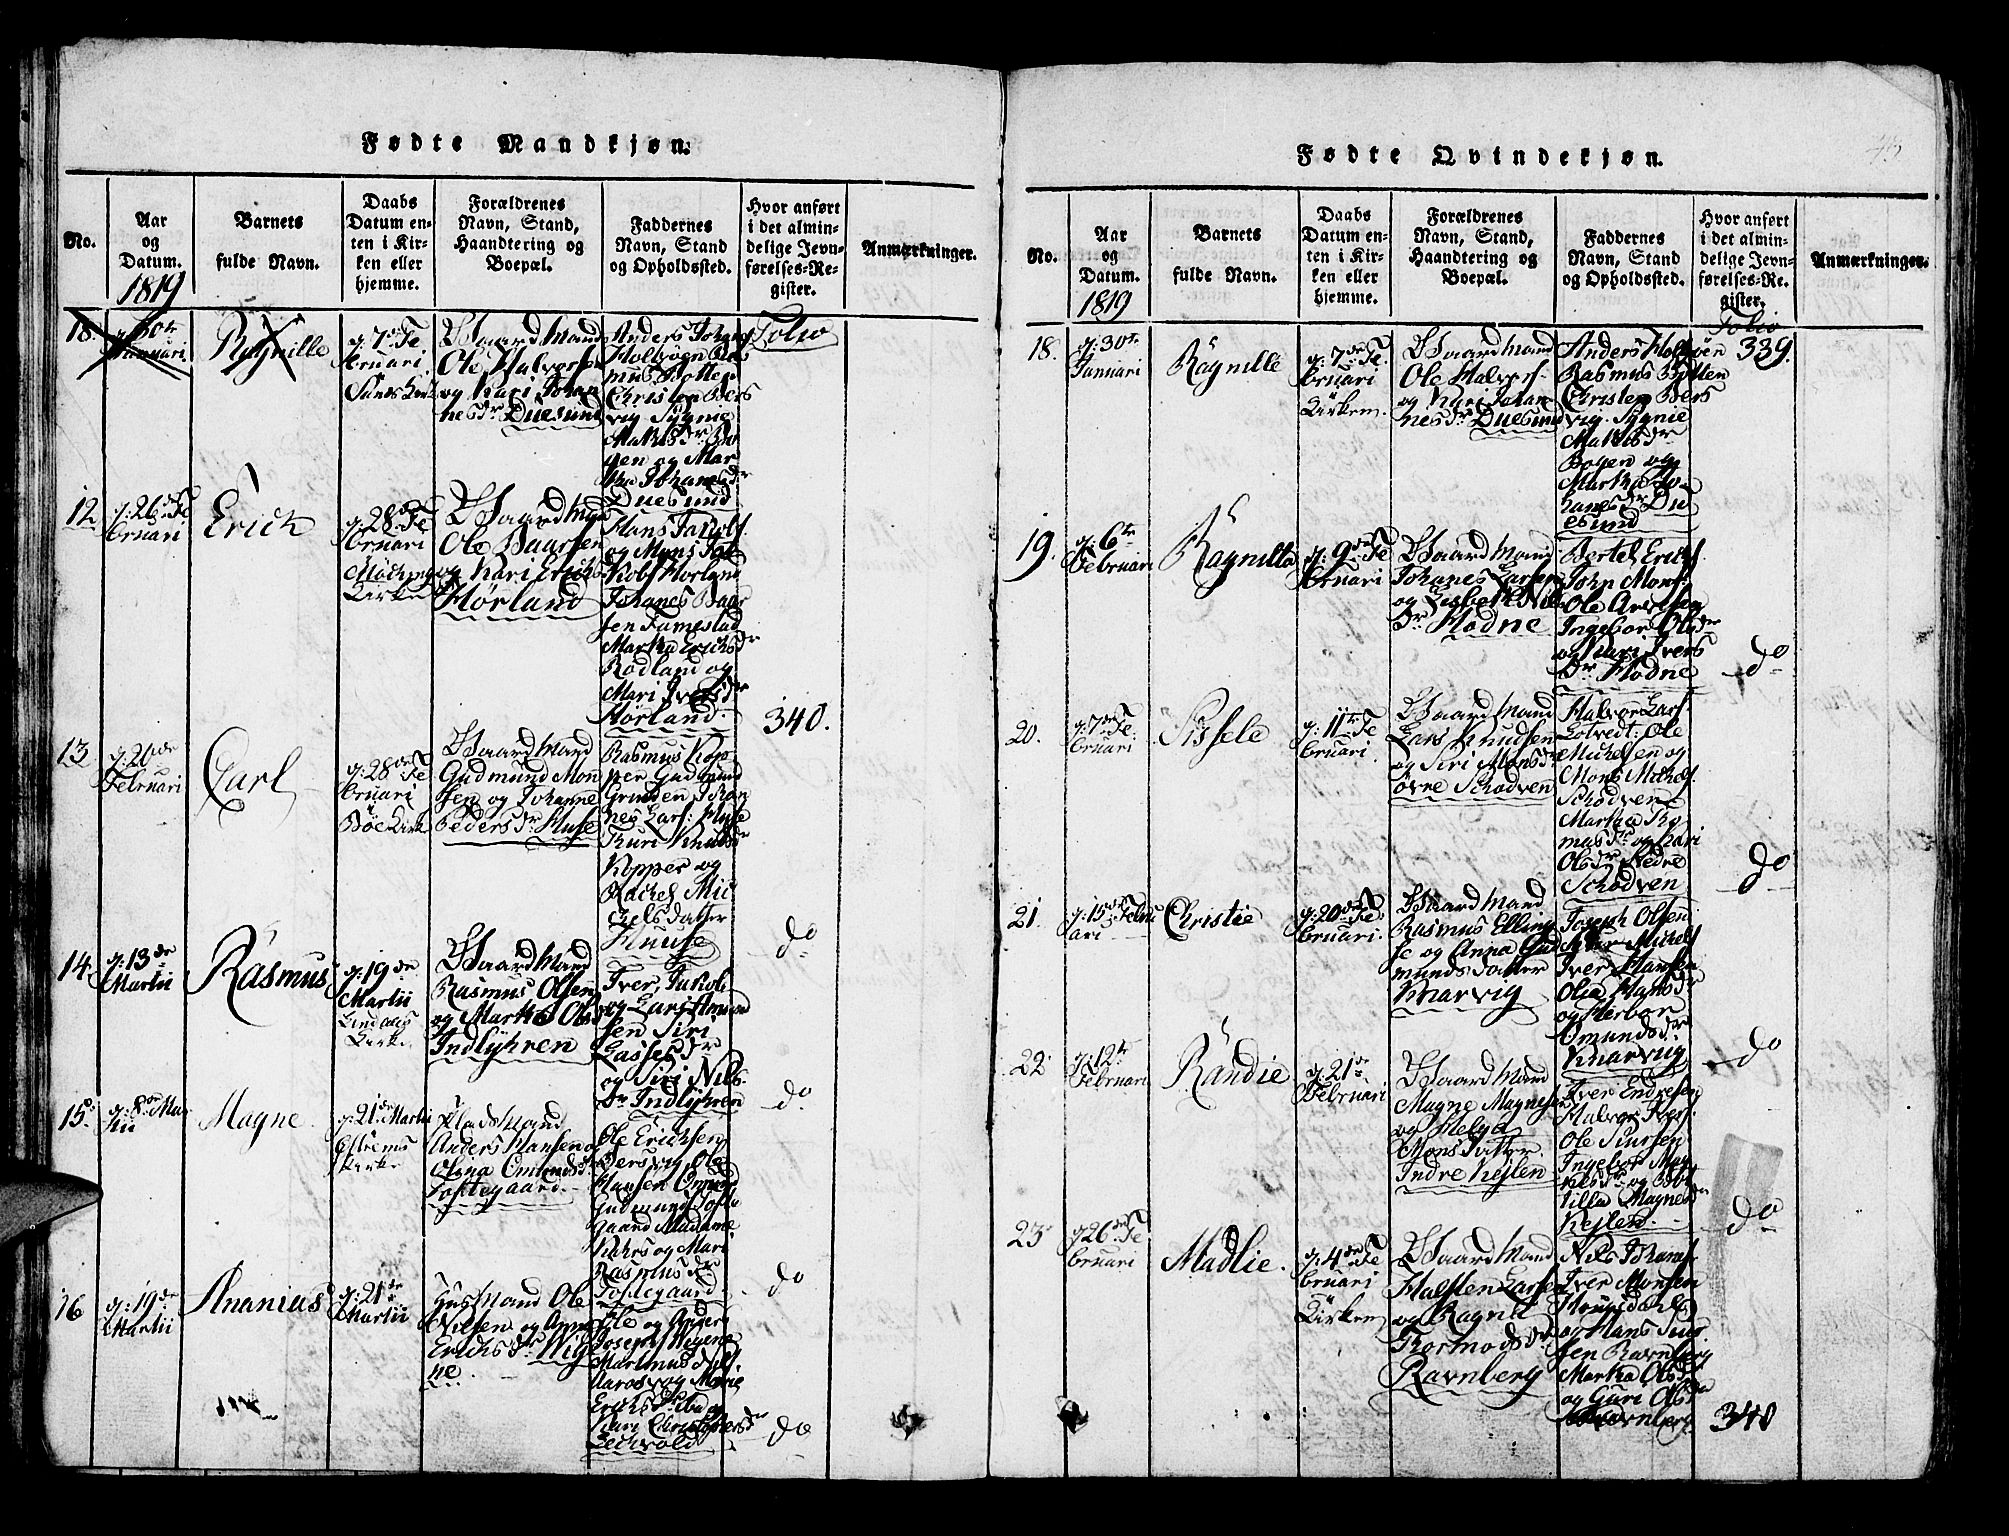 Fødte Mandkjøn.
No.
Aar
og
Datum.
1819
Barnets
fulde Navn.
Daabs
Datum en-
ten i Kir-
ken eller
hjemme.
Forældrenes
Navn, Stand,
Haandtering og
Boepæl.
Faddernes
Navn, Stand
og Opholdssted.
Hvor anført
i det almin-
delige Jevn-
førelses-Re-
gister.
Anmærkninger.
18.
30te
Januari
Ragnille
d: 7de Fe
bruari
Gaardmand
Ole Halvorsen
og Kari Johan
nesdr Duesund
Anders Johan
Holbøen Ras
mus Botten
Christen Bers
vig Sygnie
Mathisdr Bø
yen og Mar
tha Johanesdr
Duesund
Folio
12
d: 26de Fe
bruari
Erich
d: 28de Fe
bruari
Kirke
Gaardmand
Ole Baarsen
og Kari Erichs
Hørland
Hans Jakobs
og Mons Ja
kobs Hørland
Johanes Baar
sen Famestad
Martha Erichsdr
Rødland og
Mari Iversdr
Hørland.
340.
13
d: 20de
Februari
Carl
d: 28de Fe
bruari
Bøe Kirk
Gaardmand
Gudmund Mon
sen og Johanne
Pedersdr Huse
Rasmus Kop
per Gudmund
Johan
nes Lars: Huse
Guri Knudsdr
Kopper og
Rachel Mic
helsdatter
Huuse
do
14
d: 13de
Martii
Rasmus
d: 19de
Martii
Lindaas
Kirke
Gaardmand
Rasmus Olsen
og Martha Olsd
Indlyhren
Iver Jakob
og Lars Amund
sen Siri
Lassesdr
og Siri Nils
Dr Indlyhren
do
15
d: 8de Mar
tii
Magne
d: 21de Martii
Kirke
Pladsmand
Anders Hansen o
Olina Omundsd
Toftegaard
Ole Erichsen
Bersvig Ole
Hansen Omund
Gudmund Tofte
gaard Madame
Kahrs og Mari
Rasmusdr
Toftegaard
do
16
d: 19de
Martii
Ananius
d: 21de
Martii
Husmand Ole
Nilsen og Anne
Erichsdr Wig
ne
Ole og Anders
Joseph Wigene
Martinus Olss
Aarosvog Marie
Erichsdr
Kari Christophersdr
Lechvold
do
Fødte Qvindekjøn.
No.
Aar
og
Datum.
1819
Barnets
fulde Navn.
Daabs
Datum en-
ten i Kir-
ken eller
hjemme.
Forældrenes
Navn, Stand,
Haandtering og
Boepæl.
Faddernes
Navn, Stand
og Opholdssted.
Hvor anført
i det almin-
delige Jevn-
førelses-Re-
gister.
Folio
Anmærkninger.
18.
d: 30te
Januari
Ragnille
d: 7de Fe
bruari
Kirken
Gaardmand
Ole Halvors-
og Kari Johan
nesdr Duesund
Anders Holbøen
Rasmus Botten
Christen Bers
vig. Sygnie
Mathisdr
Bøyen og
Martha Jo-
hanesdr Du
esund
339.
19.
d: 6te
Februari
Ragnilla
d: 9de Fe
bruari
Gaardmand
Johanes Larsen
og Lisbeth Nils
Dr Hodne
Bertel Erichs
John Mons:
Ole Arnesen
Ingebor Olsdr
og Kari Ivers
Dr Hodne
do
20.
d: 7de Fe
bruari
Sissele
d: 11te Fe
bruari
Gaardmand
Lars Knudsen
og Siri Monsdr
øvre Schodven
Halvor Lars
Lotvedt: Ole
Michelsen og
Mons Michels
Schodven
Martha Tho
masdr og Kari
Olsdr Nedre
Schodven
do
21.
d: 15de Febru
ari
Christie
d: 20de Fe
bruari.
Gaardmand
Rasmus Elling
se og Anna Gud
mundsdatter
Knarvig
Joseph Olsen
Michels
Iver Hansen
Olia Hansdr
og Herbor
Omundsdr
Knarvig
do
22
d: 12te
Februari
Randie
d: 21de
Februari
Gaardmand
Magne Magnesen
og Helga
Monsdatter
Indre Kejlen
Iver Endresen
Halvor Ivers
Ole Siursen
Ingebor Mag
nesdr og Bot
tilla Magnesdr
Kejlen.
do
23
d: 26de Fe
bruari
Madlie.
d: 4de Fe
bruari
Kirken
Gaardmand
Halsten Larsen
og Ragna
Tormodsdr
Ravnberg
Nils Johans
Iver Monsen
Houssdahl
og Hans Siur
sen Ravnberg
Martha Olsd
og Guri Olsdr
Ravnberg
340